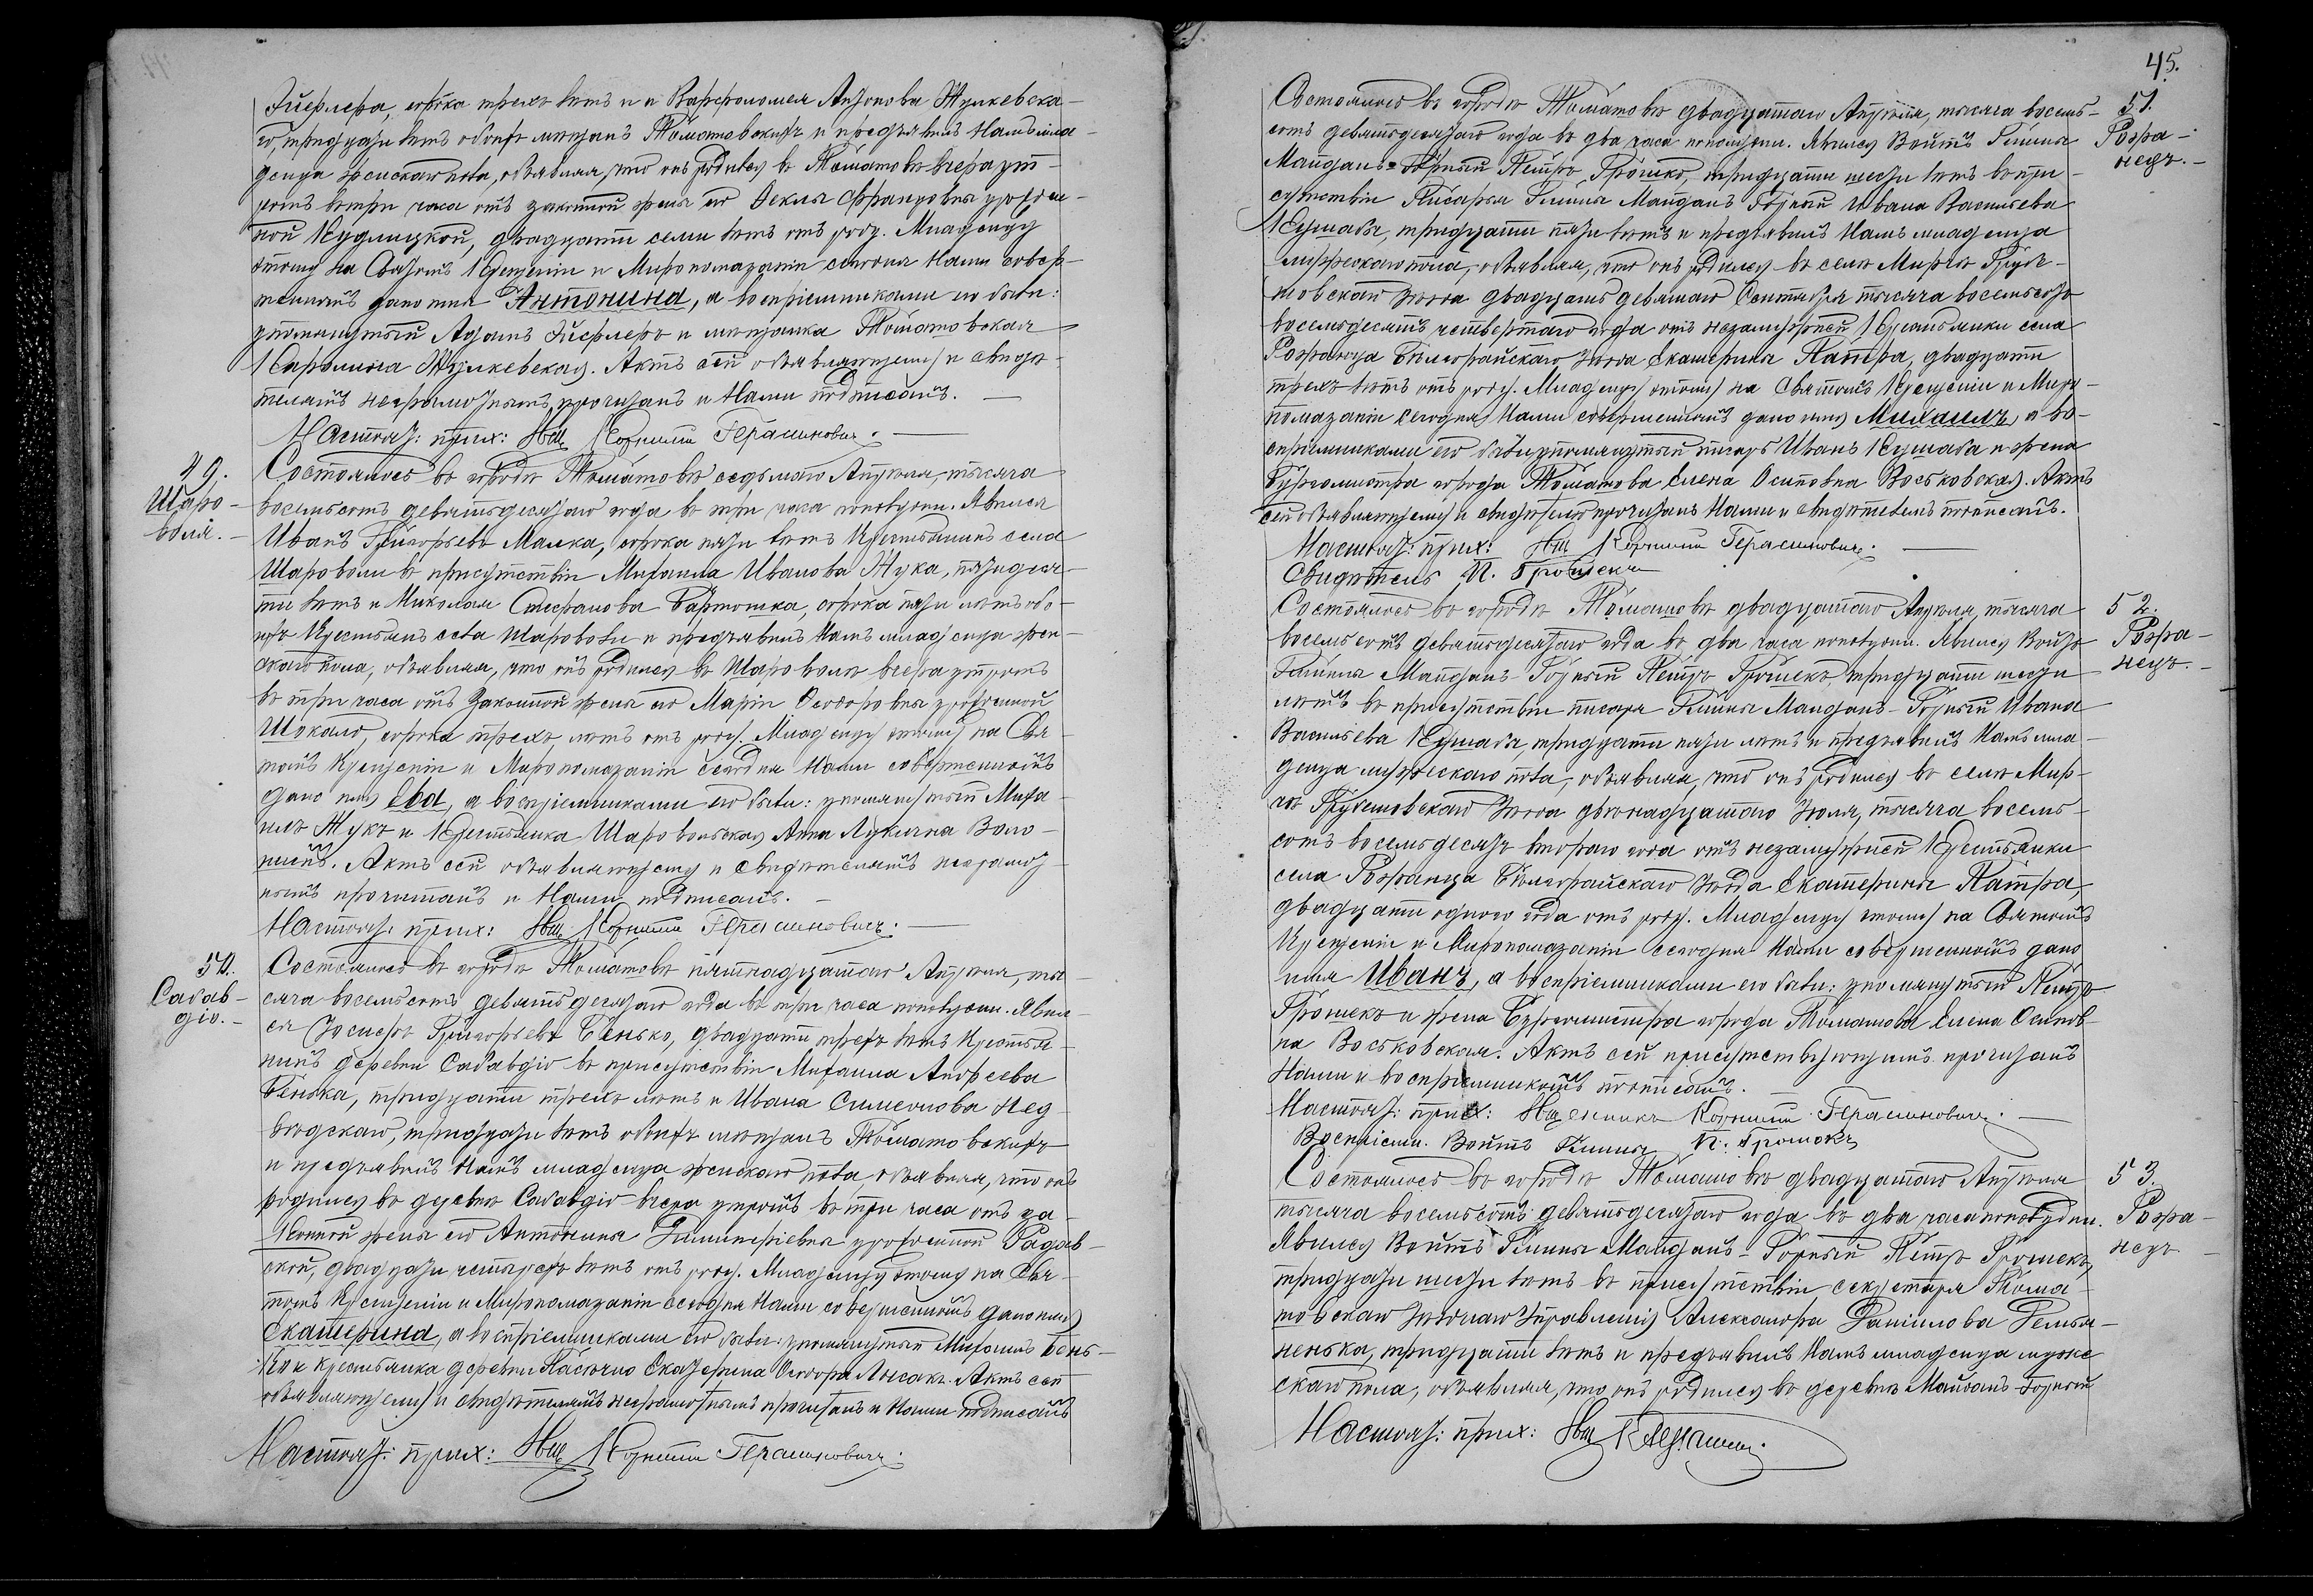 сорока трехъ лѣтъ и Варфоломея Антонова Жулкевска-
го, тридцати лѣтъ обоихъ мѣщанъ Томашовскихъ и предъявилъ Намъ мла-
денца женскаго пола, объявляя, что онъ родился въ Томашовѣ вчера ут-
ромъ въ три часа отъ законной жены его Ѳеклы Францовны урожден-
ной Кудлицкой, двадцати семи лѣтъ отъ роду. Младенцу
этому на Святомъ Крещеніи и Миропомазаніи сегодня Нами совер-
шенномъ дано имя Антонина, а воспріемниками его были:
упомянутый Адамъ и мѣщанка Томашовская
Каролина Жулкевская. Актъ сей объявляющему и свидѣ-
телямъ неграмотнымъ, прочитанъ и Нами подписанъ.
Настоят: прих: Свщ Корнилій Герасимовичъ.
49.
Шаро-
воля.
Состоялось въ городѣ Томашовѣ седьмаго Апрѣля, тысяча
восемьсотъ девятьдесятаго года въ три часа пополудни. Явился
Иванъ Григорьевъ Малка, сорока пяти лѣтъ крестьянинъ села
Шароволи въ присутствіи Михаила Иванова Жука, пятидеся-
ти лѣтъ и Николая Стефанова Бартошка, сорока пяти лѣтъ обо-
ихъ крестьянъ села Шароволи и предъявилъ Намъ младенца жен-
скаго пола, объявляя, что онъ родился въ Шароволѣ вчера утромъ
въ три часа отъ законной жены его Маріи Ѳеодоровны урожденной
Шокало, сорока трехъ лѣтъ отъ роду. Младенцу этому на Свя-
томъ Крещеніи и Миропомазаніи сегодня Нами совершенномъ
дано имя Ева, а воспріемниками его были: упомянутый Миха-
илъ Жукъ и Крестьянка Шаровольская Анна Лукична Воло-
Актъ сей объявляющему и свидѣтелямъ неграмот-
нымъ прочитанъ и Нами подписанъ.
Настоят. прих: Свщ. Корнилій Герасимовичъ.
50.
Сабав-
діо.
Состоялось въ городѣ Томашовѣ пятнадцатаго Апрѣля, ты-
сяча восемьсотъ девятьдесятаго года въ три часа пополудни. Явил-
ся Іосифъ Григорьевъ Бенько, двадцати трехъ лѣтъ крестья-
нинъ деревни Сабавдіо въ присутствіи Михаила Андреева
Бенька, тридцати трехъ лѣтъ и Ивана Симеонова Нед-
водскаго, тридцати лѣтъ обоихъ мѣщанъ Томашовскихъ
и предъявилъ Намъ младенца женскаго пола, объявляя, что онъ
родился въ деревнѣ Сабавдіо вчера утромъ въ три часа отъ за-
конной жены его Антонины Димитріевны урожденной Радав-
ской, двадцати четырехъ лѣтъ отъ роду. Младенцу этому на Свя-
томъ Крещеніи и Миропомазаніи сегодня Нами совершенномъ дано имя
Екатерина, а воспріемниками его были: упомянутый Михаилъ Бень-
ко и крестьянка деревни Пасѣчно Екатерина Ѳеодора Актъ сей
объявляющему и свидѣтелямъ неграмотнымъ прочитанъ и Нами подписанъ
Настоят: прих: Свщ Корнилій Герасимовичъ.
45.
51.
Розра-
нецъ.
Состоялось въ городѣ Томашовѣ двадцатаго Апрѣля, тысяча восемь-
сотъ девятьдесятаго года въ два часа пополудни. Явился Войтъ Гмины
Майданъ-Горный Петръ Грошекъ, тридцати шести лѣтъ въ при-
сутствіи Писаря Гмины Майданъ Горный Ивана Васильева
Кушабы, тридцати пяти лѣтъ и предъявилъ Намъ младенца
мужескаго пола, объявляя, что онъ родился въ селѣ Мирче Грубе-
шовскаго уѣзда двадцать девятаго Сентября тысяча восемьсотъ
восемьдесятъ четвертаго года отъ незамужней Крестьянки села
Бѣлгорайскаго уѣзда Екатерины Патра, двадцати
трехъ лѣтъ отъ роду. Младенцу этому на Святомъ Крещеніи и Миро-
помазаніи сегодня Нами совершенномъ дано имя Михаилъ, а во-
спріемниками его были упомянутый писарь Иванъ Кушаба и жена
Бургомистра города Томашова Елена Осиповна Воськовская. Актъ
сей объявляющему и свидѣтелю прочитанъ Нами и свидѣтелемъ подписанъ.
Настоят: прих: Свщ Корнилій Герасимовичъ.
Свидѣтель П. Грошекъ
52.
Розра-
нецъ.
Состоялось въ городѣ Томашовѣ двадцатаго Апрѣля, тысяча
восемьсотъ девятьдесятаго года въ два часа пополудни. Явился Войтъ
Гмины Майданъ-Горный Петръ Грошекъ, тридцати шести
лѣтъ въ присутствіи писаря Гмины Майданъ-Горный Ивана
Васильева Кушабы, тридцати пяти лѣтъ и предъявилъ Намъ мла-
денца мужескаго пола, объявляя, что онъ родился въ селѣ Мир-
че Грубешовскаго уѣзда двѣнадцатаго Іюля, тысяча восемь-
сотъ восемьдесятъ втораго года отъ незамужней Крестьянки
села Бѣлгорайскаго уѣзда Екатерины Патра,
двадцати одного года отъ роду. Младенцу этому на Святомъ
Крещеніи и Миропомазаніи сегодня Нами совершенномъ дано
имя Иванъ, а воспріемниками его были: упомянутый Петръ
Грошекъ и жена Бургомистра города Томашова Елена Осипов-
на Воськовская. Актъ сей присутствующимъ прочитанъ
Нами и воспріемникомъ подписанъ.
Настоят: прих: Священникъ Корнилій Герасимовичъ.
Воспріемн. Войтъ Гмины П. Грошекъ
53.
Розра-
нецъ
Состоялось въ городѣ Томашовѣ двадцатаго Апрѣля
тысяча восемьсотъ девятьдесятаго года въ два часа пополудни.
Явился Войтъ Гмины Майданъ-Горный Петръ Грошекъ,
тридцати шести лѣтъ въ присутствіи секретаря Тома-
шовскаго Уѣзднаго Управленія Александра Даніилова Гемья-
ненька, тридцати лѣтъ и предъявилъ Намъ младенца муже-
скаго пола, объявляя, что онъ родился въ деревнѣ Майданъ-Горный
Настоят: прих: Свщ